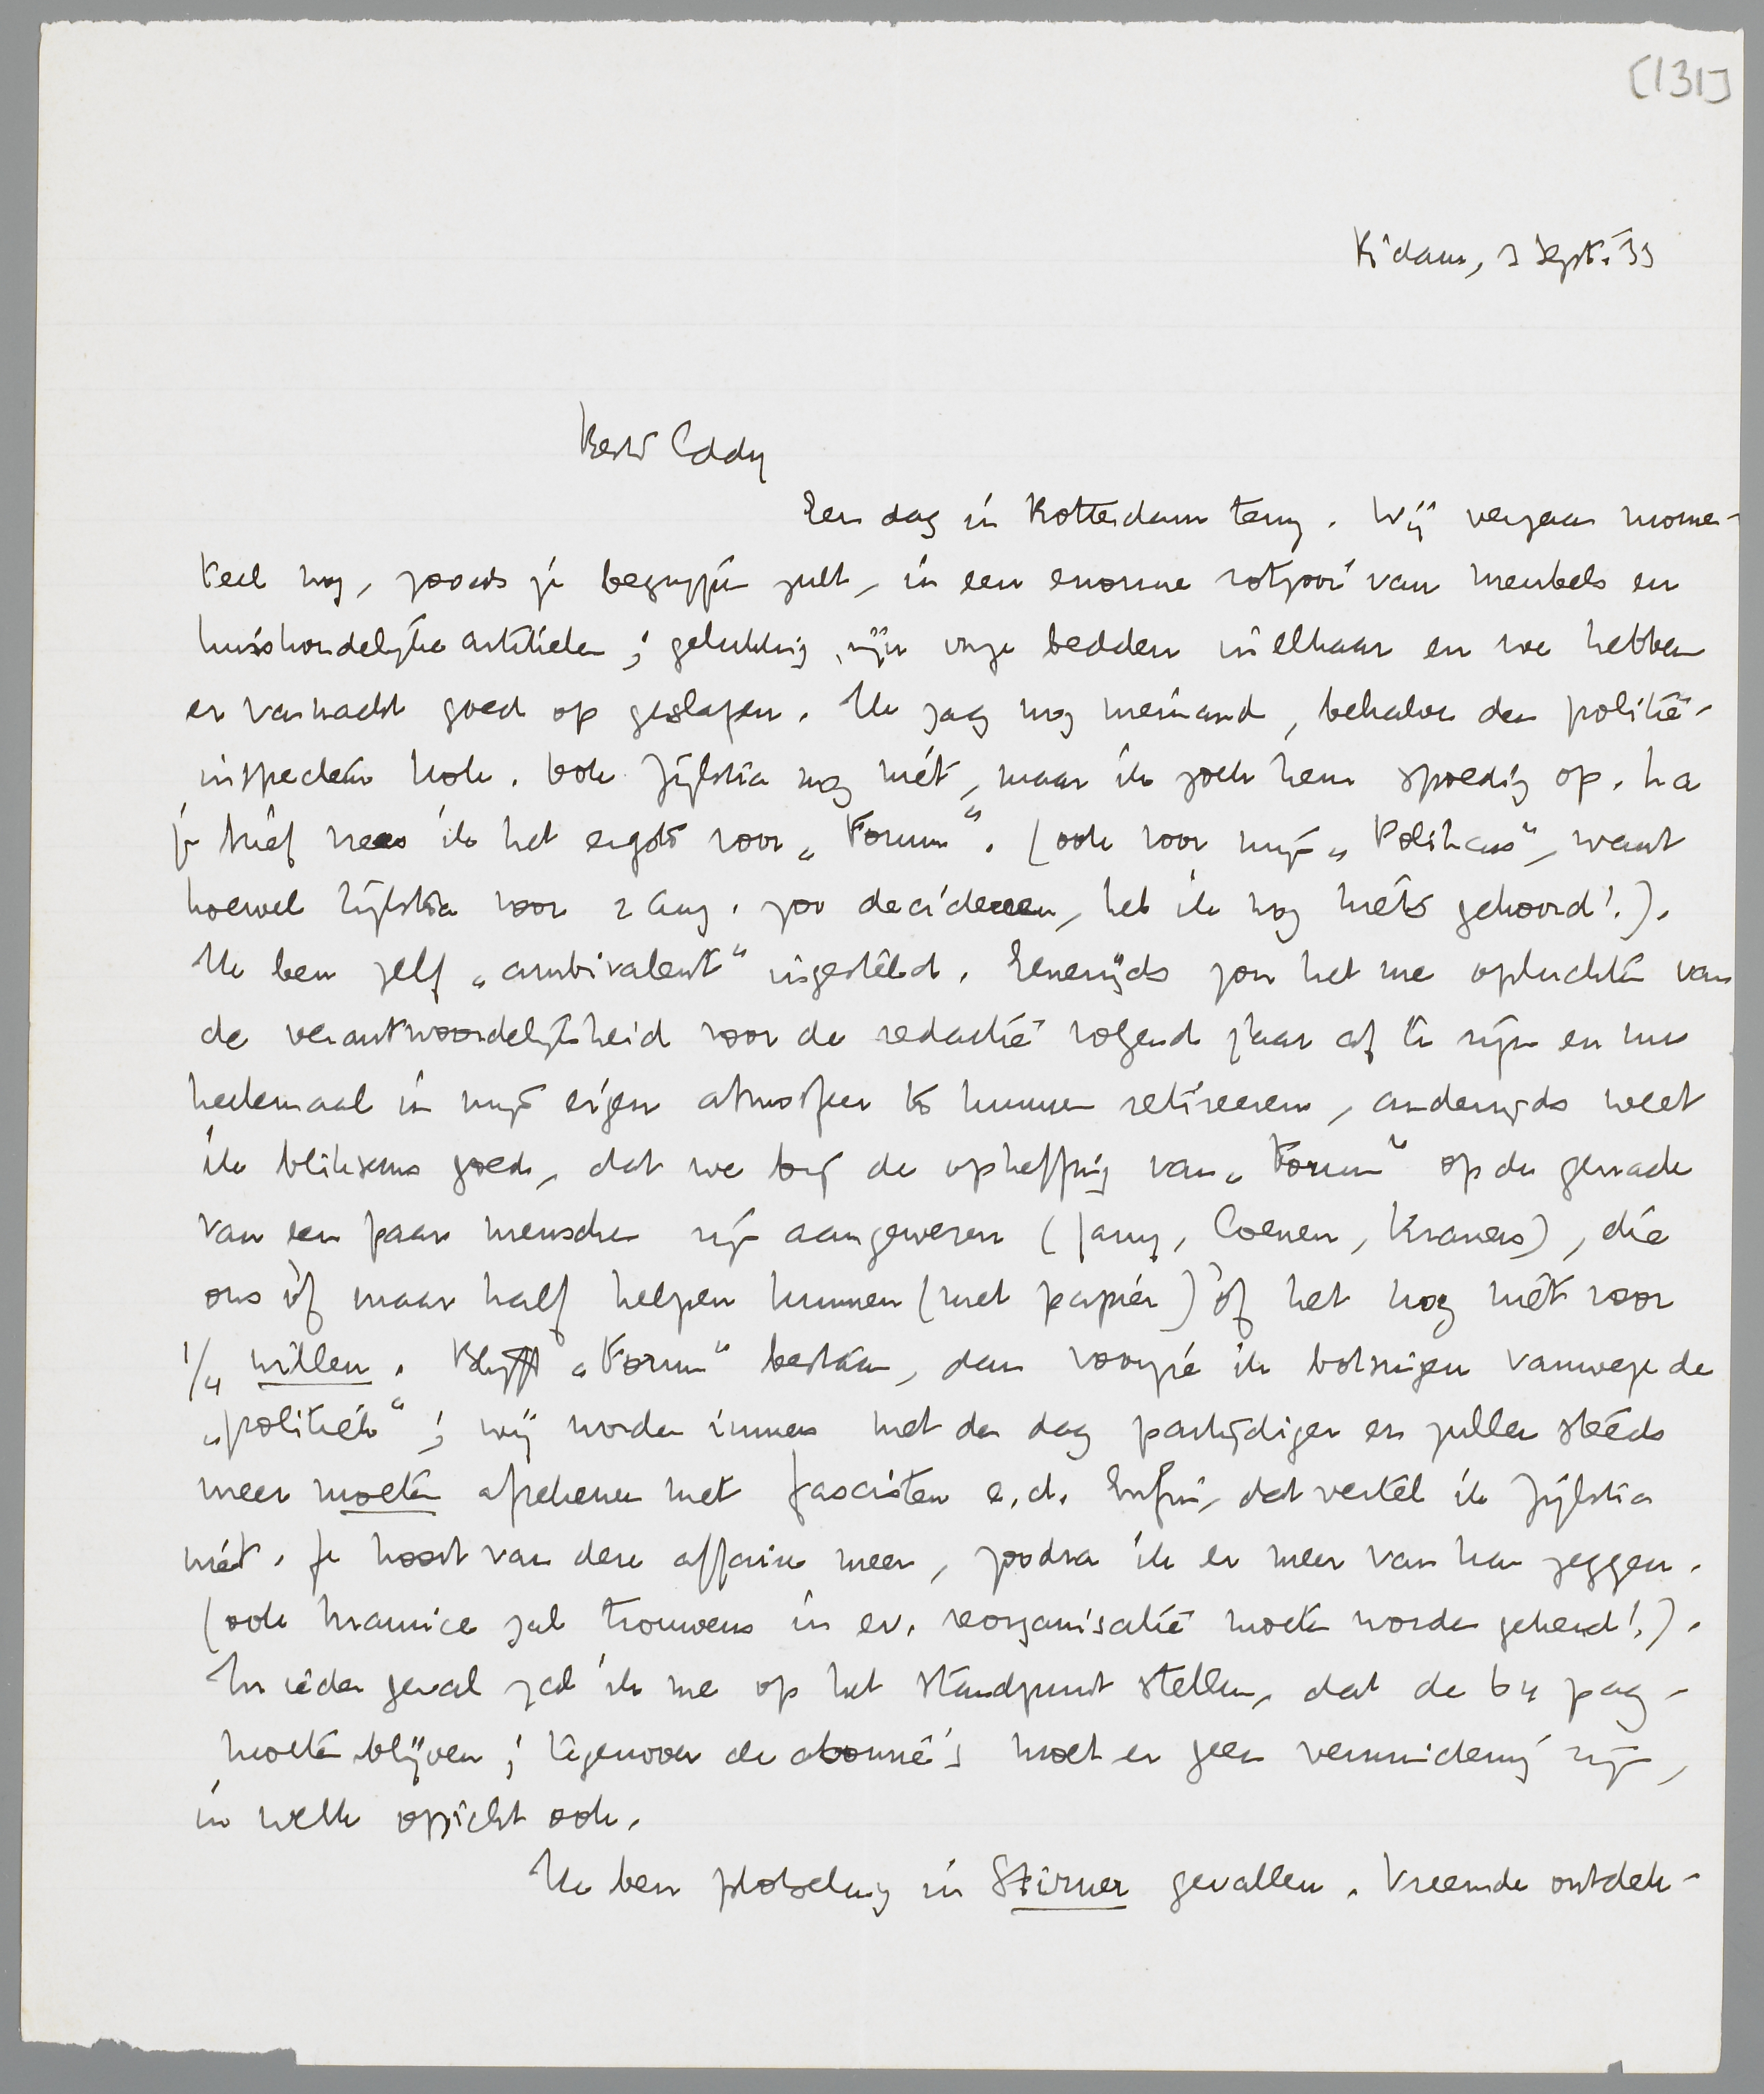 [131]
R'dam, 3 Sept. '33
Beste Eddy
Een dag in Rotterdam terug. Wij vergaan momen-
teel nog, zooals je begrijpen zult, in een enorme rotzooi van meubels en
huishoudelijke artikelen; gelukkig zijn onze bedden in elkaar en we hebben
er vannacht goed op geslapen. Ik zag nog niemand, behalve den politie-
inspecteur Kok. Ook Zijlstra nog niet, maar ik zoek hem spoedig op. Na
je brief vrees ik het ergste voor „Forum". (ook voor mijn „Politicus", want
hoewel Zijlstra voor 2 Aug. zou decideeren, heb ik nog niets gehoord!).
Ik ben zelf „ambivalent" ingesteld. Eenerzijds zou het me opluchten van
de verantwoordelijkheid voor de redactie volgend jaar af te zijn en me
heelemaal in mijn eigen atmosfeer te kunnen retireeren, anderzijds weet
ik bliksems goed, dat we bij de opheffing van „Forum" op de genade
van een paar menschen zijn aangewezen (Jany, Coenen, Kramers), die
ons òf maar half helpen kunnen (met papier) òf het nog niet voor
1/4 willen. Blijft „Forum" bestaan, dan voorzie ik botsingen vanwege de
„politiek"; wij worden immers met den dag partijdiger en zullen steeds
meer moeten afrekenen met fascisten e.d. Enfin, dat vertel ik Zijlstra
niet. Je hoort van deze affaire meer, zoodra ik er meer van kan zeggen.
(ook Maurice zal trouwens in ev. reorganisatie moeten worden gekend!).
In ieder geval zal ik me op het standpunt stellen, dat de 64 pag.
moeten blijven; tegenover de abonné's moet er geen vermindering zijn,
in welk opzicht ook.
Ik ben plotseling in Stirner gevallen. Vreemde ontdek-